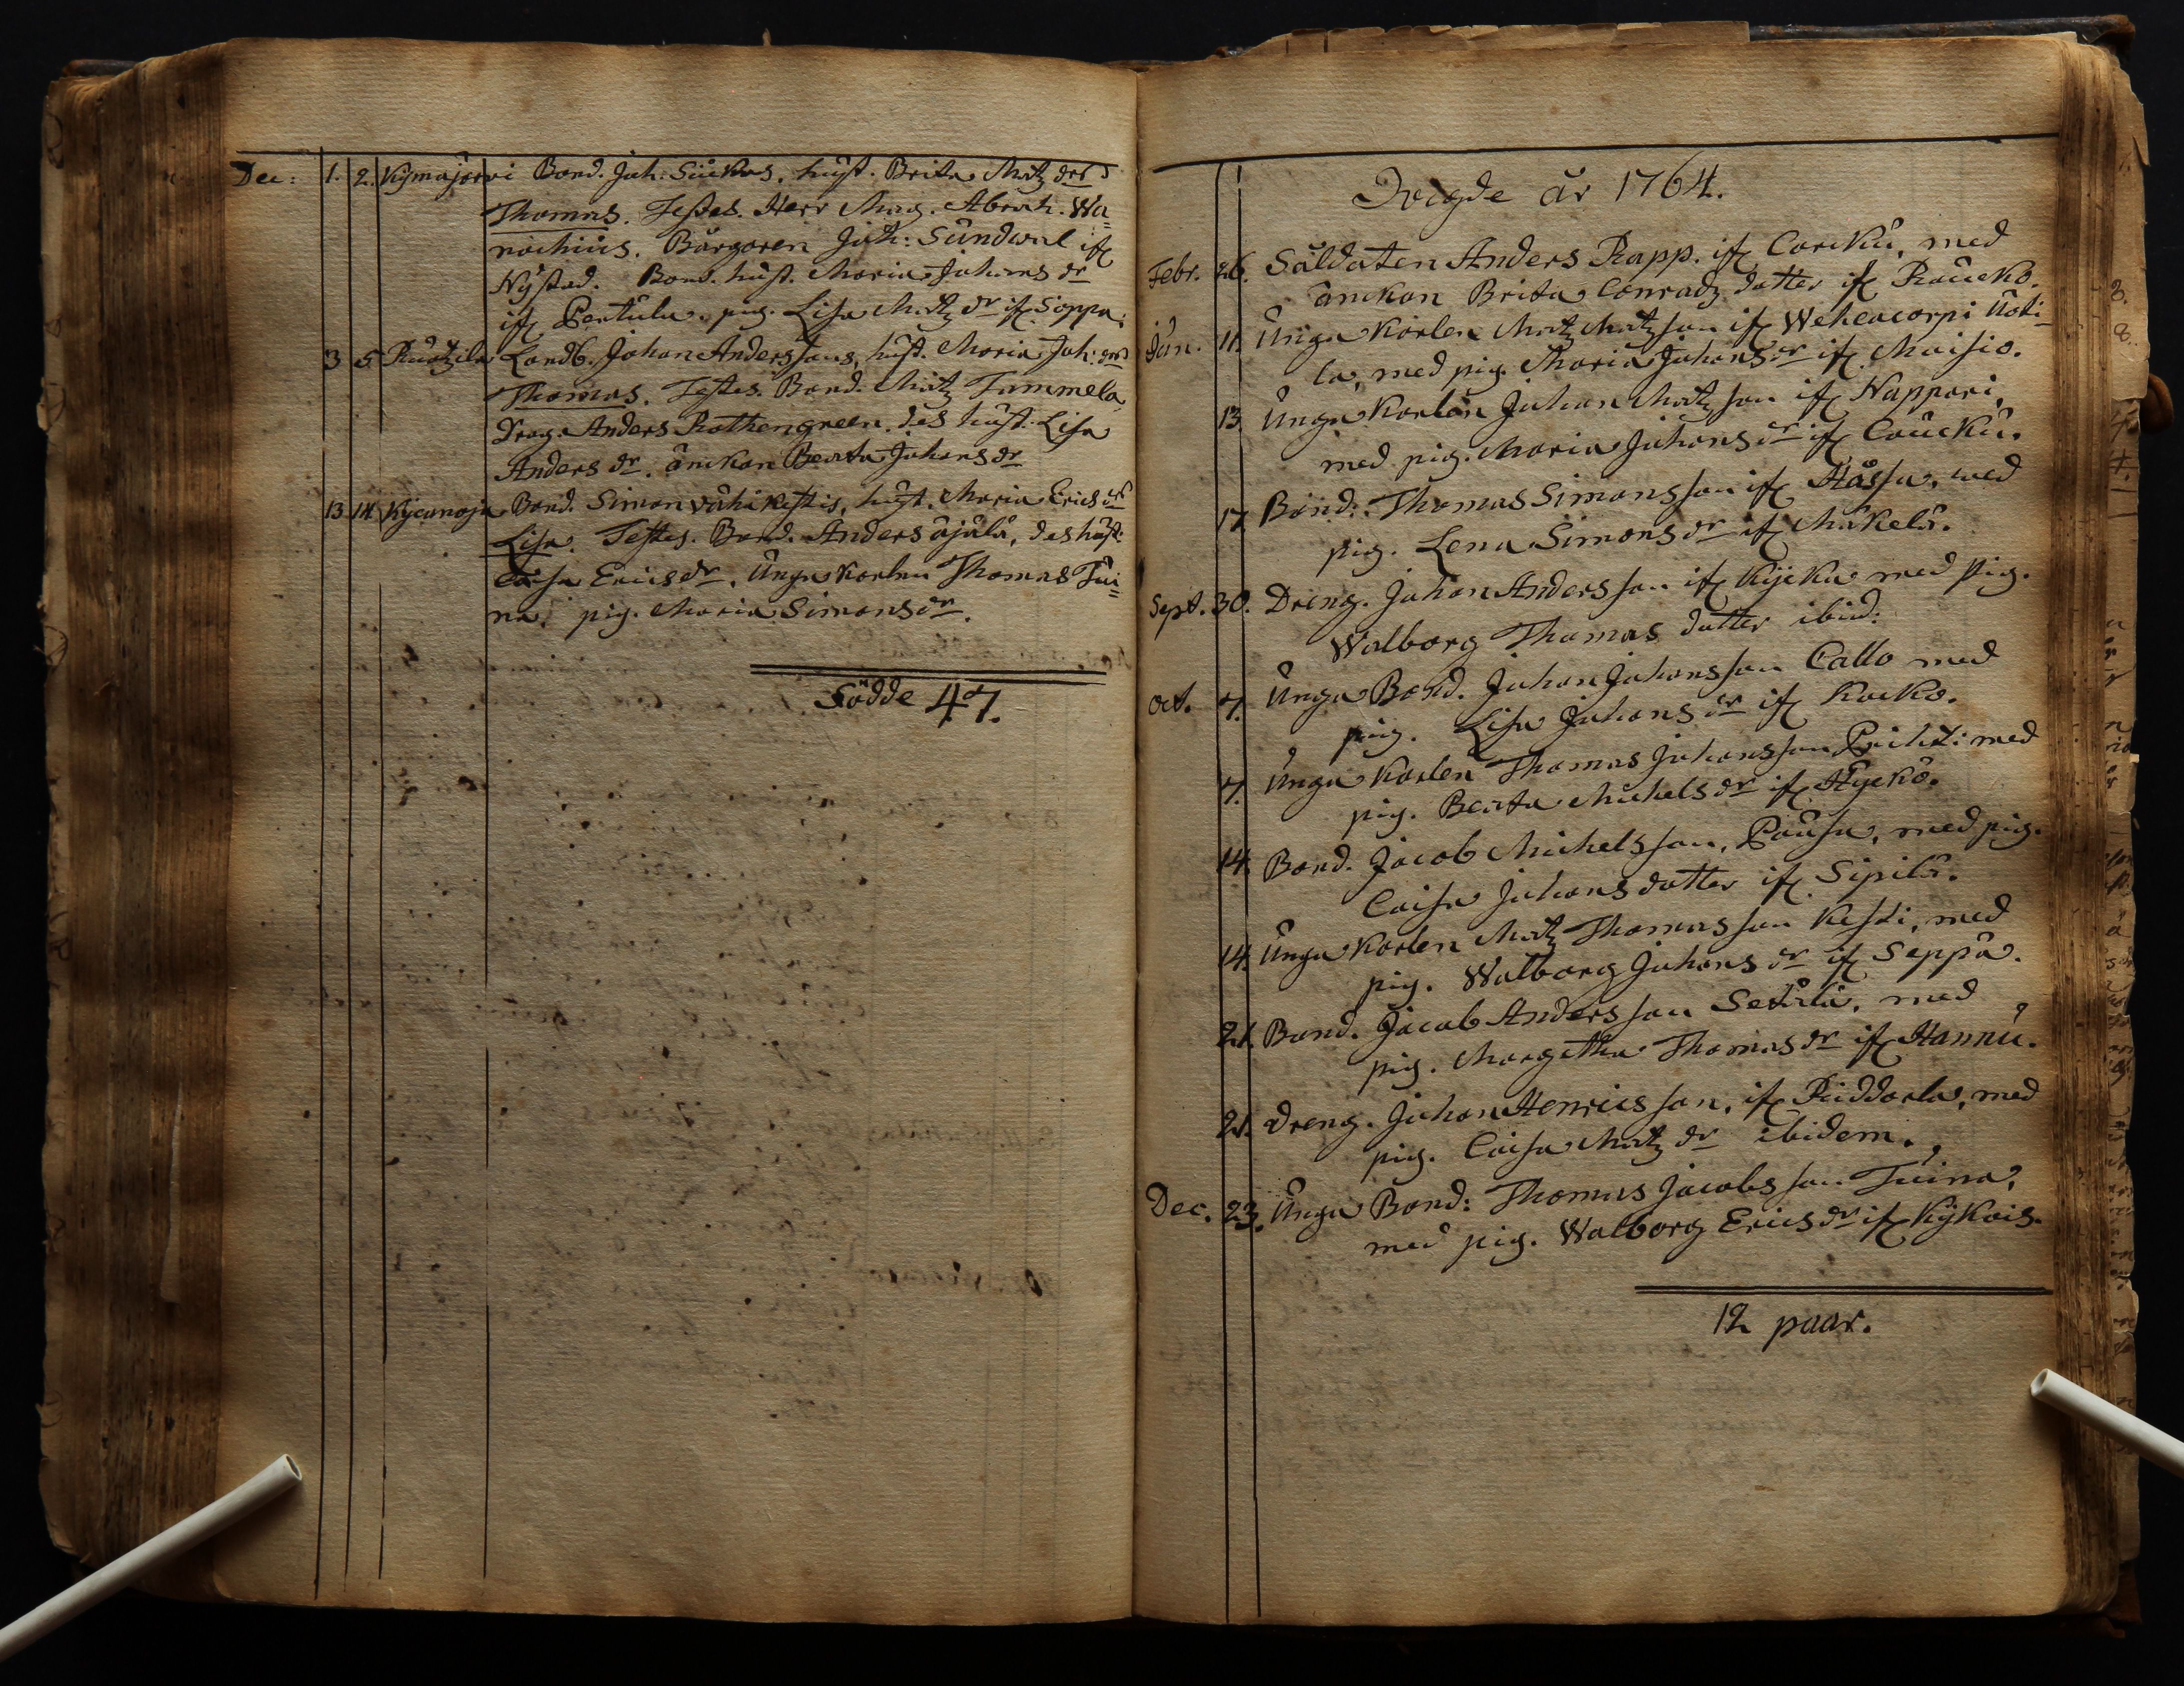 Dec: 1. 2. Kijmajorvi Bond. Joh. Siukas, hust. Brita Matz drs
Thomas. Testes. Herr Mag. Abrah. Wa=
nochius. Bårgaren Joh: Sundwal if
Nystad. Bond. hust. Maria Johans dr
if Pertula. pig. Lisa Matz dr if Seppä.
3 5 Ruotzila Landb. Johan Anderssons, hust. Maria Joh: drs
Thomas. Testes. Bond. Matz Tammela
Drag. Anders Rothengreen. des hust. Lisa
Anders dr. änkan Beata Johans dr
13 14 Kyeanoja Bond. Simon vähikestis, hust. Maria Erics drs
Lisa. Testes. Bond. Anders äjälä, des hust:
Caisa Erics dr. Unga karlen Thomas Tui=
na, pig. Maria Simons dr.
Födde 47.
Wigde år 1764.
Febr. 26. Såldaten Anders Rapp. if Corcku, med
änckan Brita Conradz dotter if Raucko.
Jun. 11. Unga karlen Matz Matzson if Wehencorpi Uoti=
la, med pig. Maria Johans dr if Maisio.
13 Unga karlen Johan Matzson if Nappari,
med pig. Maria Johans dr if Caucku.
17 Bond: Thomas Simonsson if Håssa, med
pig. Lena Simons dr if Mäkelä.
Sept. 30. Dreng. Johan Andersson if Kijcku med pig.
Walborg Thomas dotter ibid:
Oct. 7. Unga Bond. Johan Johansson Callo med
pig. Lisa Johans dr if Kocko.
7. Unga karlen Thomas Johansson Prihti med
pig. Beata Michels dr if Hyckö.
14. Bond. Jacob Michelsson, Pausa, med pig.
Caisa Johans dotter if Sipilä.
14. Unga karlen Matz Thomasson Kesti, med
pig. Walborg Johans dr if Seppä.
21. Bond. Jacob Andersson Setälä, med
pig. Margetha Thomas dr if Hannu.
21. Dreng. Johan Henricsson, if Riddarla, med
pig. Caisa Matz dr ibidem.
Dec. 23. Unga Bond: Thomas Jacobsson Tuina,
med pig. Walborg Erics dr if Kijkois.
12 paar.